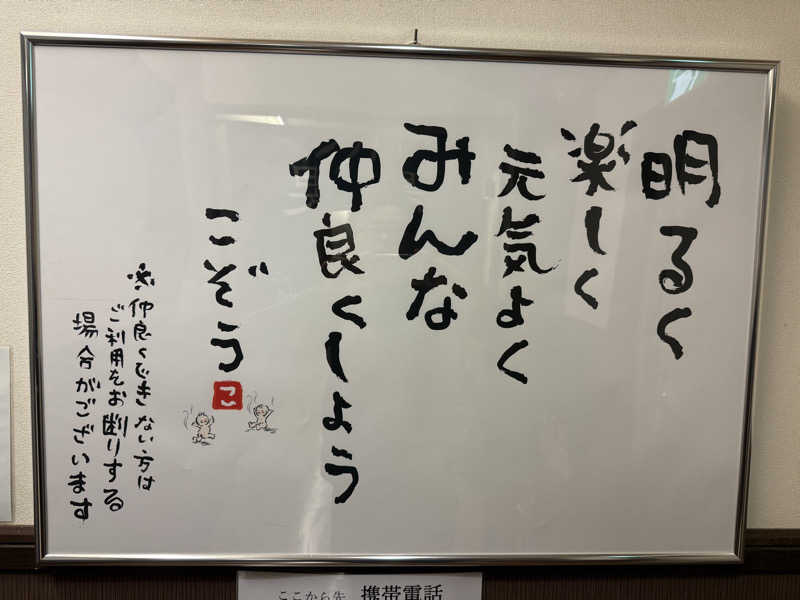 明るく
楽しく
元気よく
みんな
仲良くしよう
こぞう
こ
※仲良くできない方は
ご利用をお断りする
場合がございます
ここから先 携帯電話